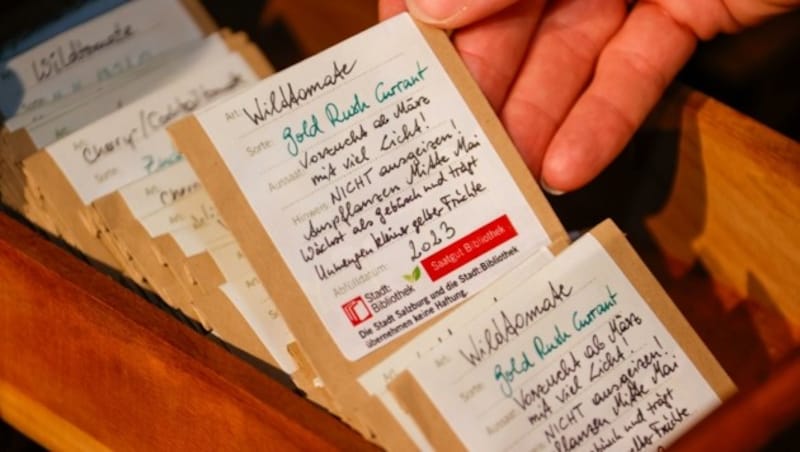 Wildtomate
Art: Cherry-/Cocktailtomate
Sorte:
Art: Cherry
Sorte:
Art: Wildtomate
Sorte: Gold Rush Currant
Aussaat: Vorzucht ab März
mit viel Licht!
Hinweis: NICHT ausgeizen!
Auspflanzen Mitte Mai
Wächst als Gebüsch und trägt
Unmengen kleiner gelber Früchte
Abfülldatum: 2023
Stadt:
Bibliothek
Saatgut Bibliothek
Die Stadt Salzburg und die Stadt:Bibliothek
übernehmen keine Haftung.
Art: Wildtomate
Sorte: Gold Rush Currant
Aussaat: Vorzucht ab März
mit viel Licht!
NICHT ausgeizen!
pflanzen Mitte Mai
und trägt
Früchte